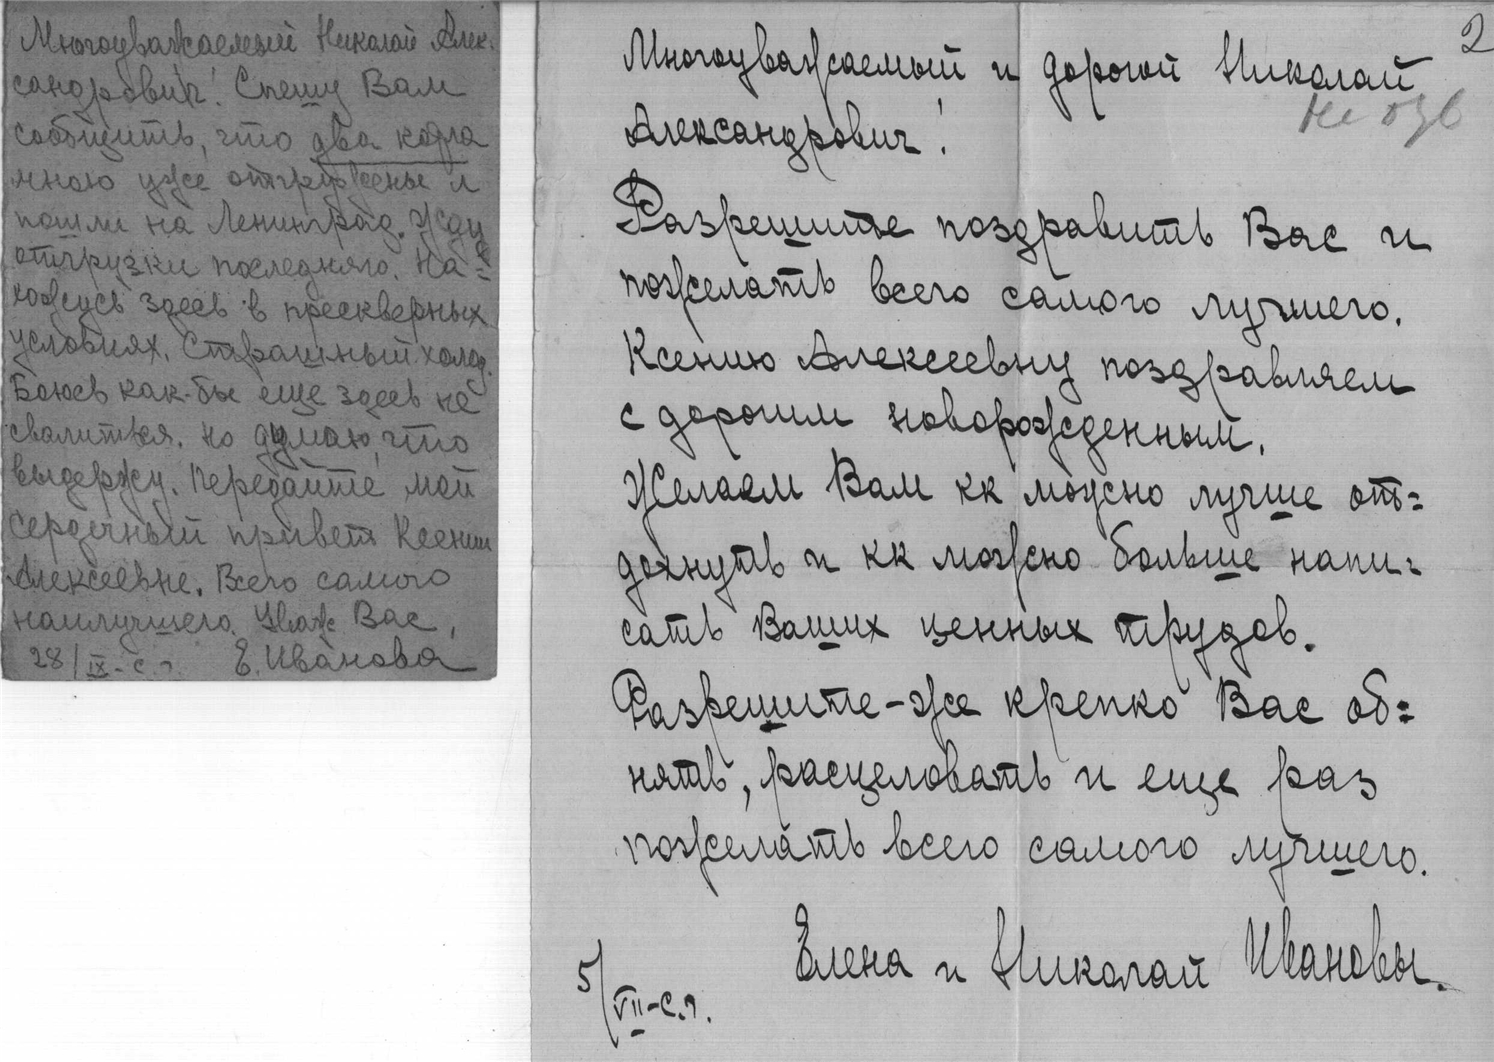 Многоуважаемый Николай Алек-
сандрович! Спешу Вам
сообщить, что два козла
мною уже отгружены и
пошли на Ленинград. Жду
отгрузки последняго. На=
хожусь здесь в прескверных
условиях. Страшный холод.
Боюсь как-бы еще здесь не
свалиться. Но думаю, что
выдержу. Передайте мой
сердечный привет Ксении
Алексеевне. Всего самого
наилучшего. Уваж Вас,
28/IX-с.г. Е. Иванова
2
Многоуважаемый и дорогой Николай
Александрович!
Разрешите поздравить Вас и
пожелать всего самого лучшего.
Ксению Алексеевну поздравляем
с дорогим новорожденным.
Желаем Вам кк можно лучше от=
дохнуть и кк можно больше напи=
сать Ваших ценных трудов.
Разрешите-же крепко Вас об=
нять, расцеловать и еще раз
пожелать всего самого лучшего.
Елена и Николай Ивановы.
5/VII-с.г.